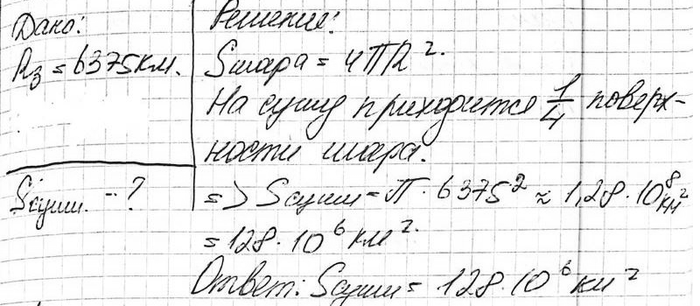 Дано:
Rз = 6375 км.
Sсуши - ?
Решение:
Sшара = 4ПR².
На сушу приходится 1/4 поверх-
ности шара.
=> Sсуши = π · 6375² ≈ 1,28 · 10⁸ км²
= 128 · 10⁶ км².
Ответ: Sсуши = 128 · 10⁶ км²